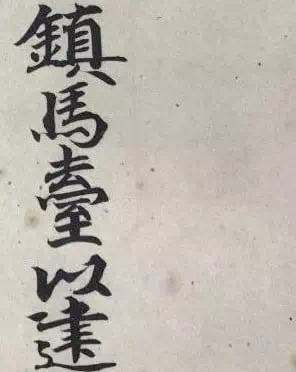 鎮馬臺以建